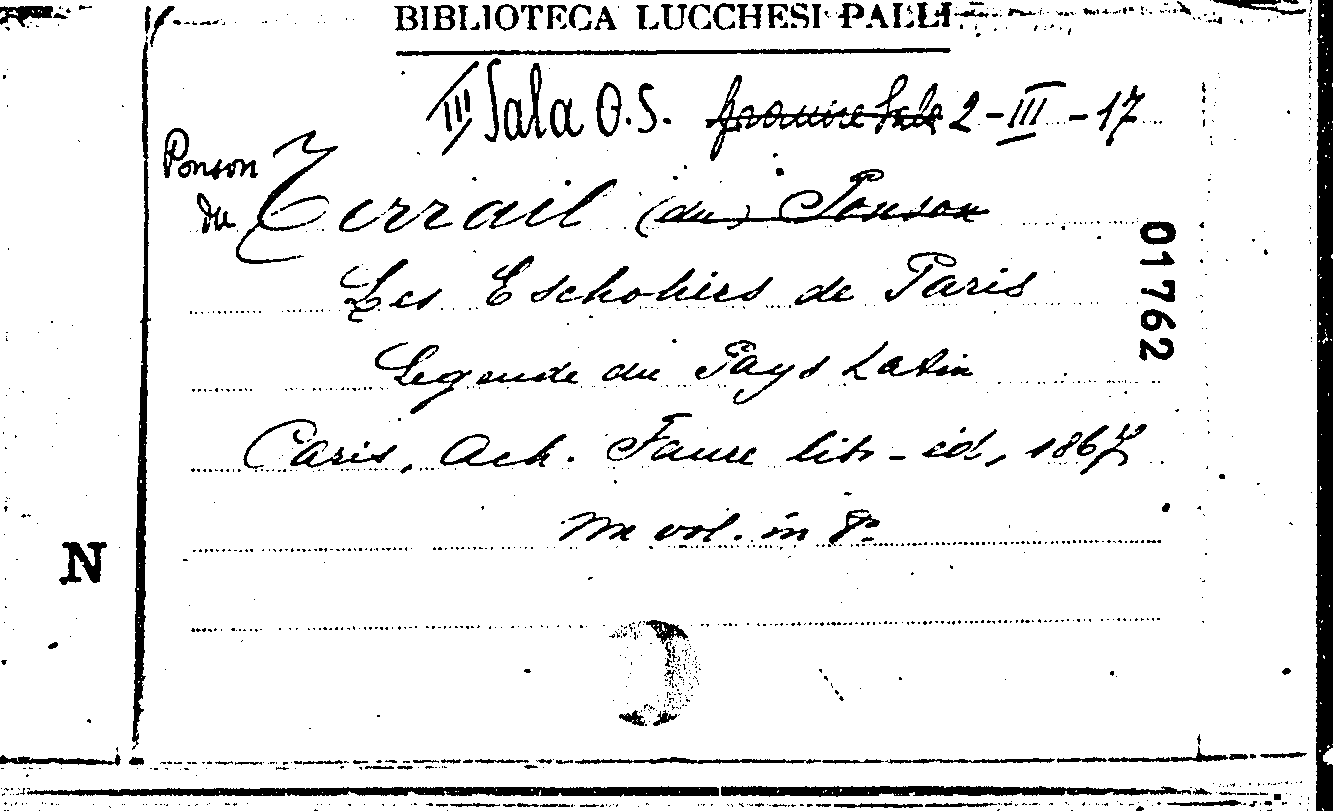 BIBLIOTECA LUCCHESI-PALLI
III Sala O.S. 2-III-17
Ponson
du Terrail (du) Ponson
Les Escholiers de Paris
Legende du Pays Latin
Paris, Ach. Faure lib-ed, 1867
Un vol. in 8º
01762
N